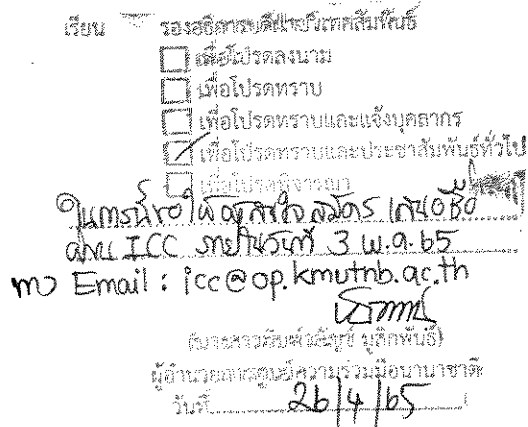 เรียน รองอธิการบดีฝ่ายวิเทศสัมพันธ์
เพื่อโปรดลงนาม
เพื่อโปรดทราบ
เพื่อโปรดทราบและแจ้งบุคลากร
เพื่อโปรดทราบและประชาสัมพันธ์ทั่วไป
เพื่อโปรดพิจารณา
ในการนี้ขอให้ผู้สนใจสมัคร เสนอชื่อ
ผ่าน ICC ภายในวันที่ 3 พ.ค. 65
ทาง Email : icc@op.kmutnb.ac.th
มูสิกพันธ์)
ผู้อำนวยการศูนย์ความร่วมมือนานาชาติ
วันที่ 26/4/65